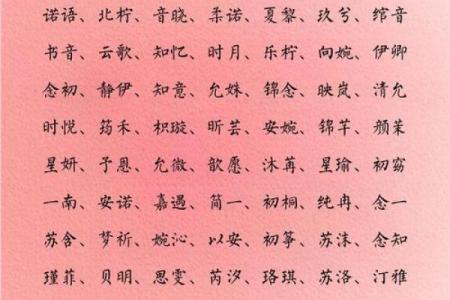 诺语、北柠、音晓、柔诺、夏黎、玖兮、绾音
书音、云歌、知忆、时月、乐柠、向婉、伊卿
念初、静伊、知意、允姝、锦念、映岚、清允
时悦、筠禾、枳璇、昕芸、安婉、锦芊、颜茉
星妍、予恩、允微、歆愿、沐苒、星瑜、初窈
一南、安诺、嘉遇、简一、初桐、纯冉、念一
苏含、梦祈、婉沁、以安、初筝、苏沫、念知
瑾菲、贝明、思雯、芮汐、珞琪、苏洛、汀雅